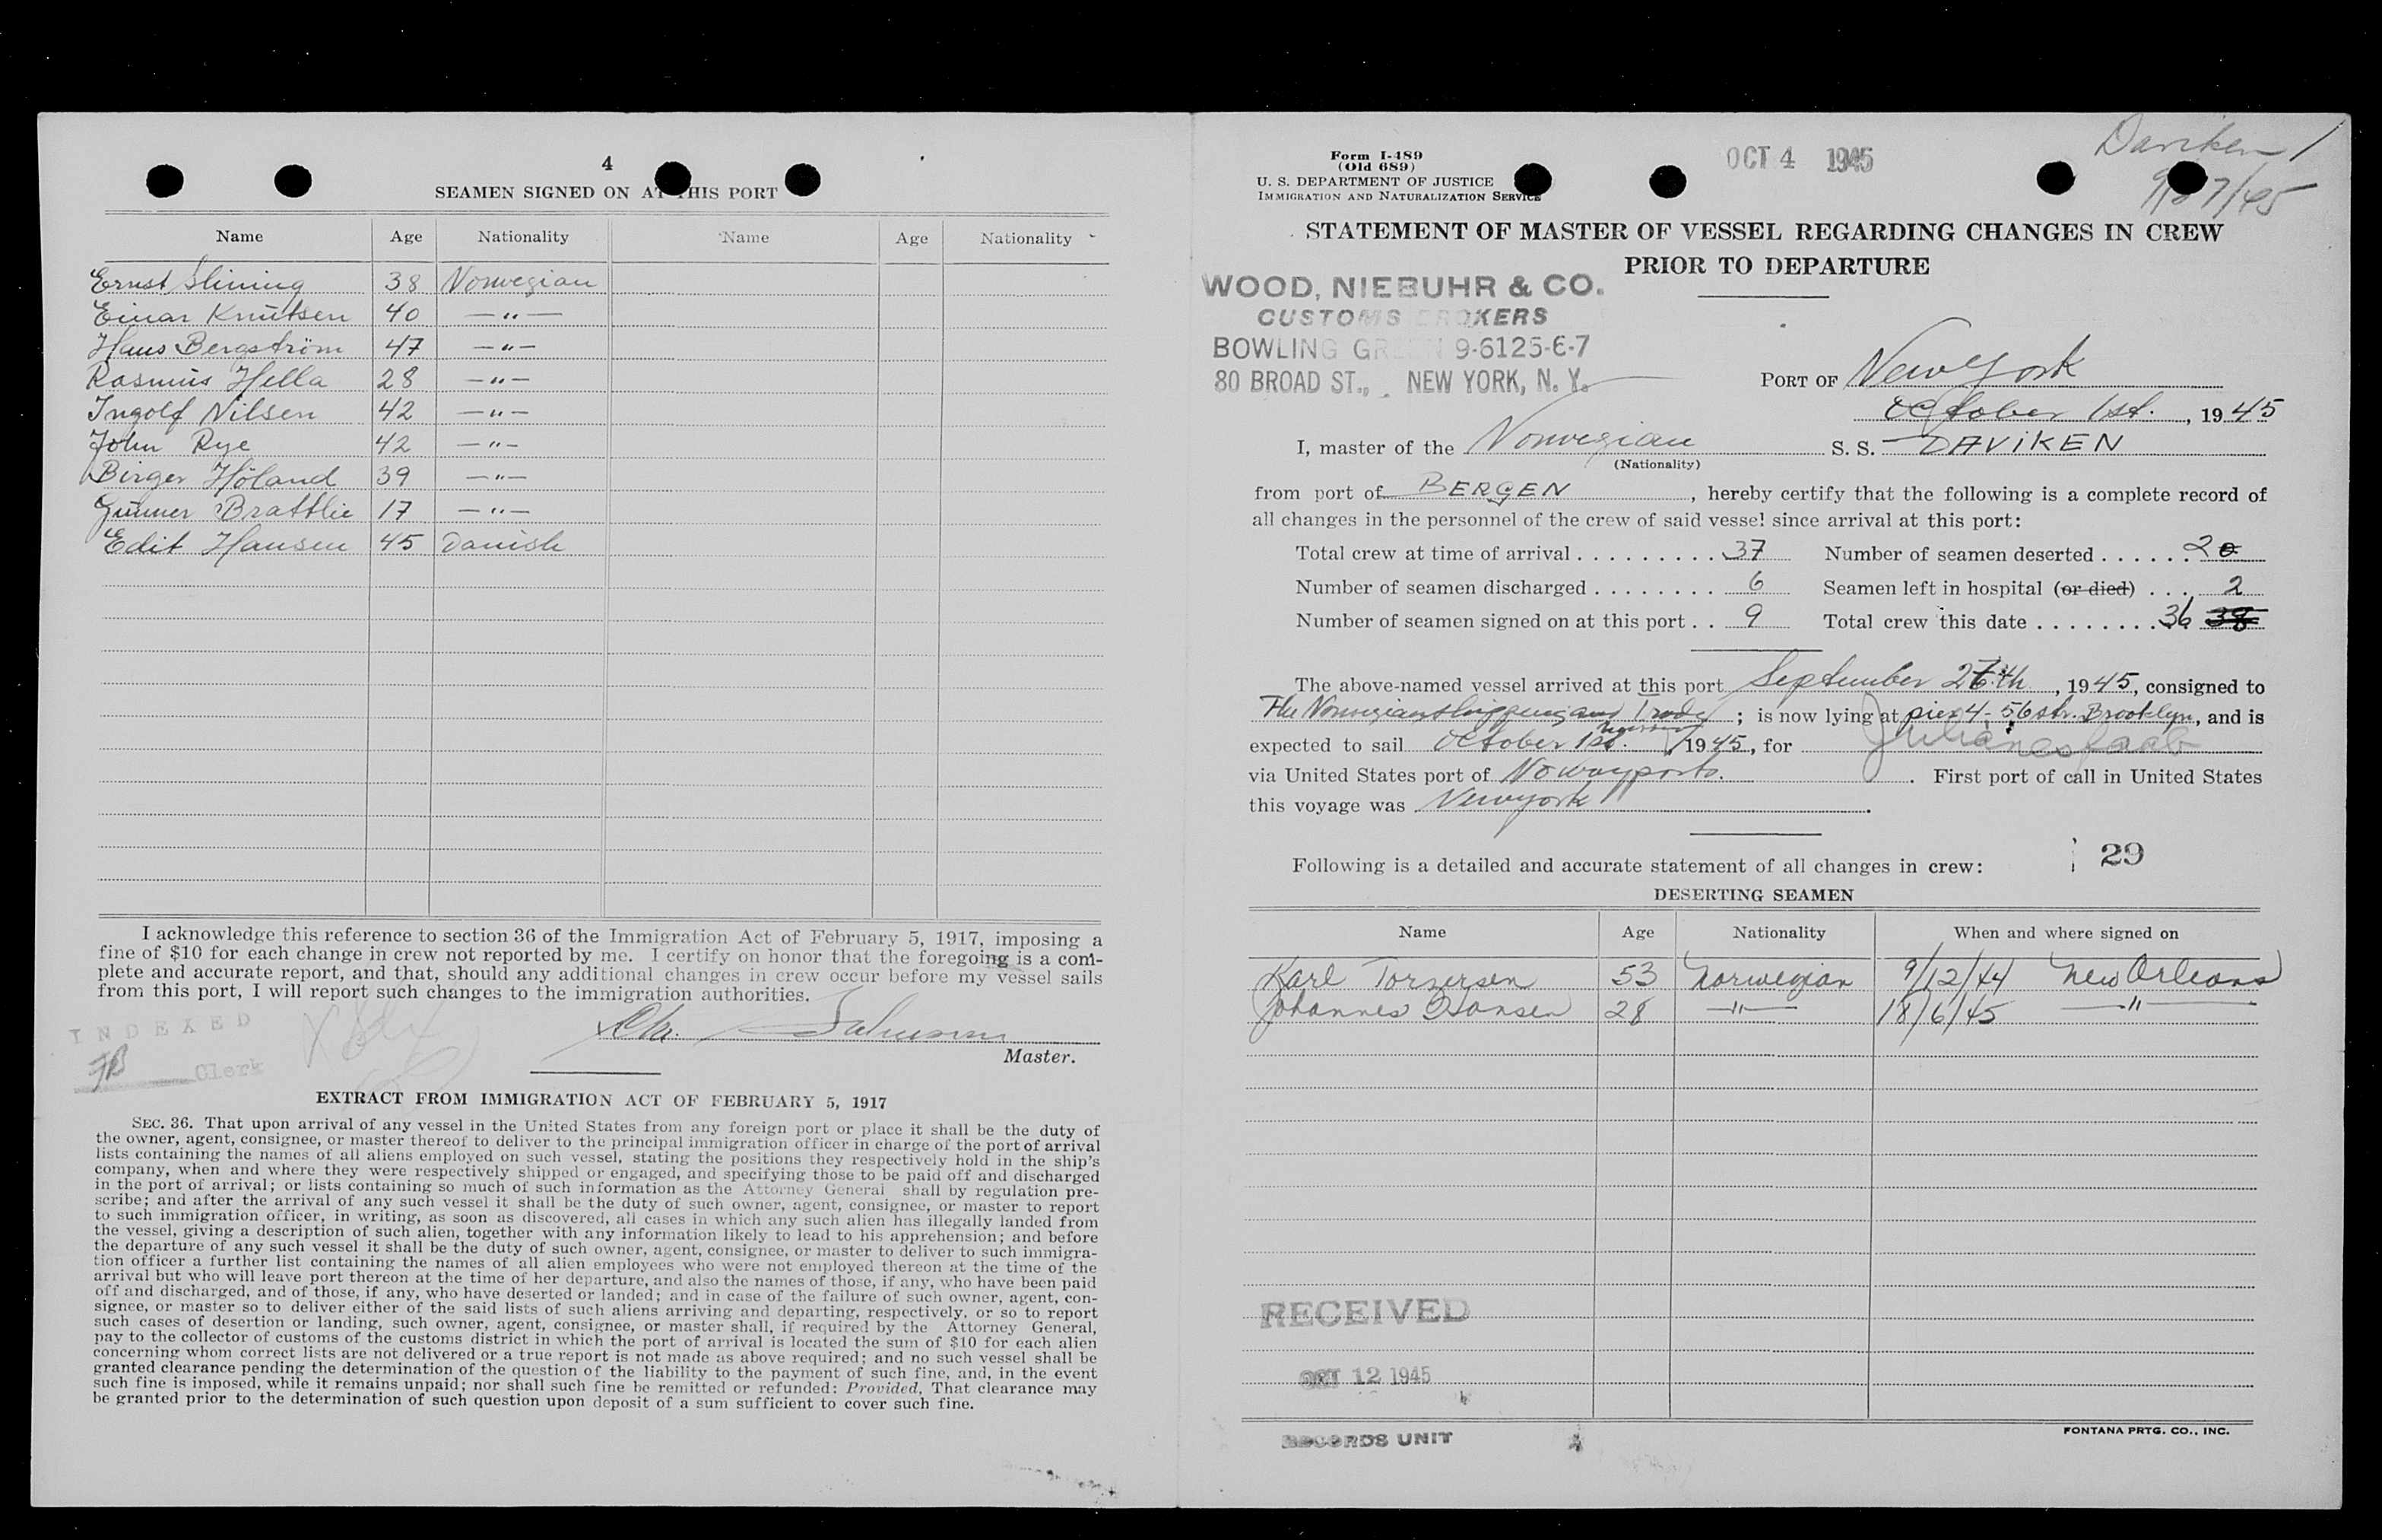 4
SEAMEN SIGNED ON AT THIS PORT
Name Age Nationality Name Age Nationality
Ernst Slining 38 Norwegian
Einar Knutsen 40 — " —
Hans Bergström 47 — " —
Rasmus Hella 28 — " —
Ingolf Nilsen 42 — " —
John Rye 42 — " —
Birger Höland 39 — " —
Gunner Brattlie 17 — " —
Edit Hansen 45 Danish
I acknowledge this reference to section 36 of the Immigration Act of February 5, 1917, imposing a
fine of $10 for each change in crew not reported by me. I certify on honor that the foregoing is a com-
plete and accurate report, and that, should any additional changes in crew occur before my vessel sails
from this port, I will report such changes to the immigration authorities.
INDEXED
JB Clerk
Master.
EXTRACT FROM IMMIGRATION ACT OF FEBRUARY 5, 1917
SEC. 36. That upon arrival of any vessel in the United States from any foreign port or place it shall be the duty of
the owner, agent, consignee, or master thereof to deliver to the principal immigration officer in charge of the port of arrival
lists containing the names of all aliens employed on such vessel, stating the positions they respectively hold in the ship's
company, when and where they were respectively shipped or engaged, and specifying those to be paid off and discharged
in the port of arrival; or lists containing so much of such information as the Attorney General shall by regulation pre-
scribe; and after the arrival of any such vessel it shall be the duty of such owner, agent, consignee, or master to report
to such immigration officer, in writing, as soon as discovered, all cases in which any such alien has illegally landed from
the vessel, giving a description of such alien, together with any information likely to lead to his apprehension; and before
the departure of any such vessel it shall be the duty of such owner, agent, consignee, or master to deliver to such immigra-
tion officer a further list containing the names of all alien employees who were not employed thereon at the time of the
arrival but who will leave port thereon at the time of her departure, and also the names of those, if any, who have been paid
off and discharged, and of those, if any, who have deserted or landed; and in case of the failure of such owner, agent, con-
signee, or master so to deliver either of the said lists of such aliens arriving and departing, respectively, or so to report
such cases of desertion or landing, such owner, agent, consignee, or master shall, if required by the Attorney General,
pay to the collector of customs of the customs district in which the port of arrival is located the sum of $10 for each alien
concerning whom correct lists are not delivered or a true report is not made as above required; and no such vessel shall be
granted clearance pending the determination of the question of the liability to the payment of such fine, and, in the event
such fine is imposed, while it remains unpaid; nor shall such fine be remitted or refunded: Provided, That clearance may
be granted prior to the determination of such question upon deposit of a sum sufficient to cover such fine.
Form I-489
(Old 689)
U. S. DEPARTMENT OF JUSTICE
IMMIGRATION AND NATURALIZATION SERVICE
OCT 4 1945
Daviken 1
9/27/45
STATEMENT OF MASTER OF VESSEL REGARDING CHANGES IN CREW
PRIOR TO DEPARTURE
WOOD, NIEBUHR & CO.
CUSTOMS BROKERS
BOWLING GREEN 9-6125-6-7
80 BROAD ST., NEW YORK, N. Y.
PORT OF New York
October 1st., 1945
I, master of the Norwegian S. S. DAVIKEN
(Nationality)
from port of BERGEN, hereby certify that the following is a complete record of
all changes in the personnel of the crew of said vessel since arrival at this port:
Total crew at time of arrival . . . . . . . . . 37 Number of seamen deserted . . . . . . 2 0
Number of seamen discharged . . . . . . . . 6 Seamen left in hospital (or died) . . . 2
Number of seamen signed on at this port . . 9 Total crew this date . . . . . . . . . 36 38
The above-named vessel arrived at this port September 27th, 1945, consigned to
The Norwegian Shipping and Trade ; is now lying at pier 4 - 56 str. Brooklyn, and is
expected to sail October 1st. 1945, for Julianeshaab
via United States port of No way ports. First port of call in United States
this voyage was Newyork.
29
Following is a detailed and accurate statement of all changes in crew:
DESERTING SEAMEN
Name Age Nationality When and where signed on
Karl Torgersen 53 Norwegian 9/12/44 New Orleans
Johannes Hansen 28 — " — 18/6/45 — " —
RECEIVED
OCT 12 1945
RECORDS UNIT
FONTANA PRTG. CO., INC.